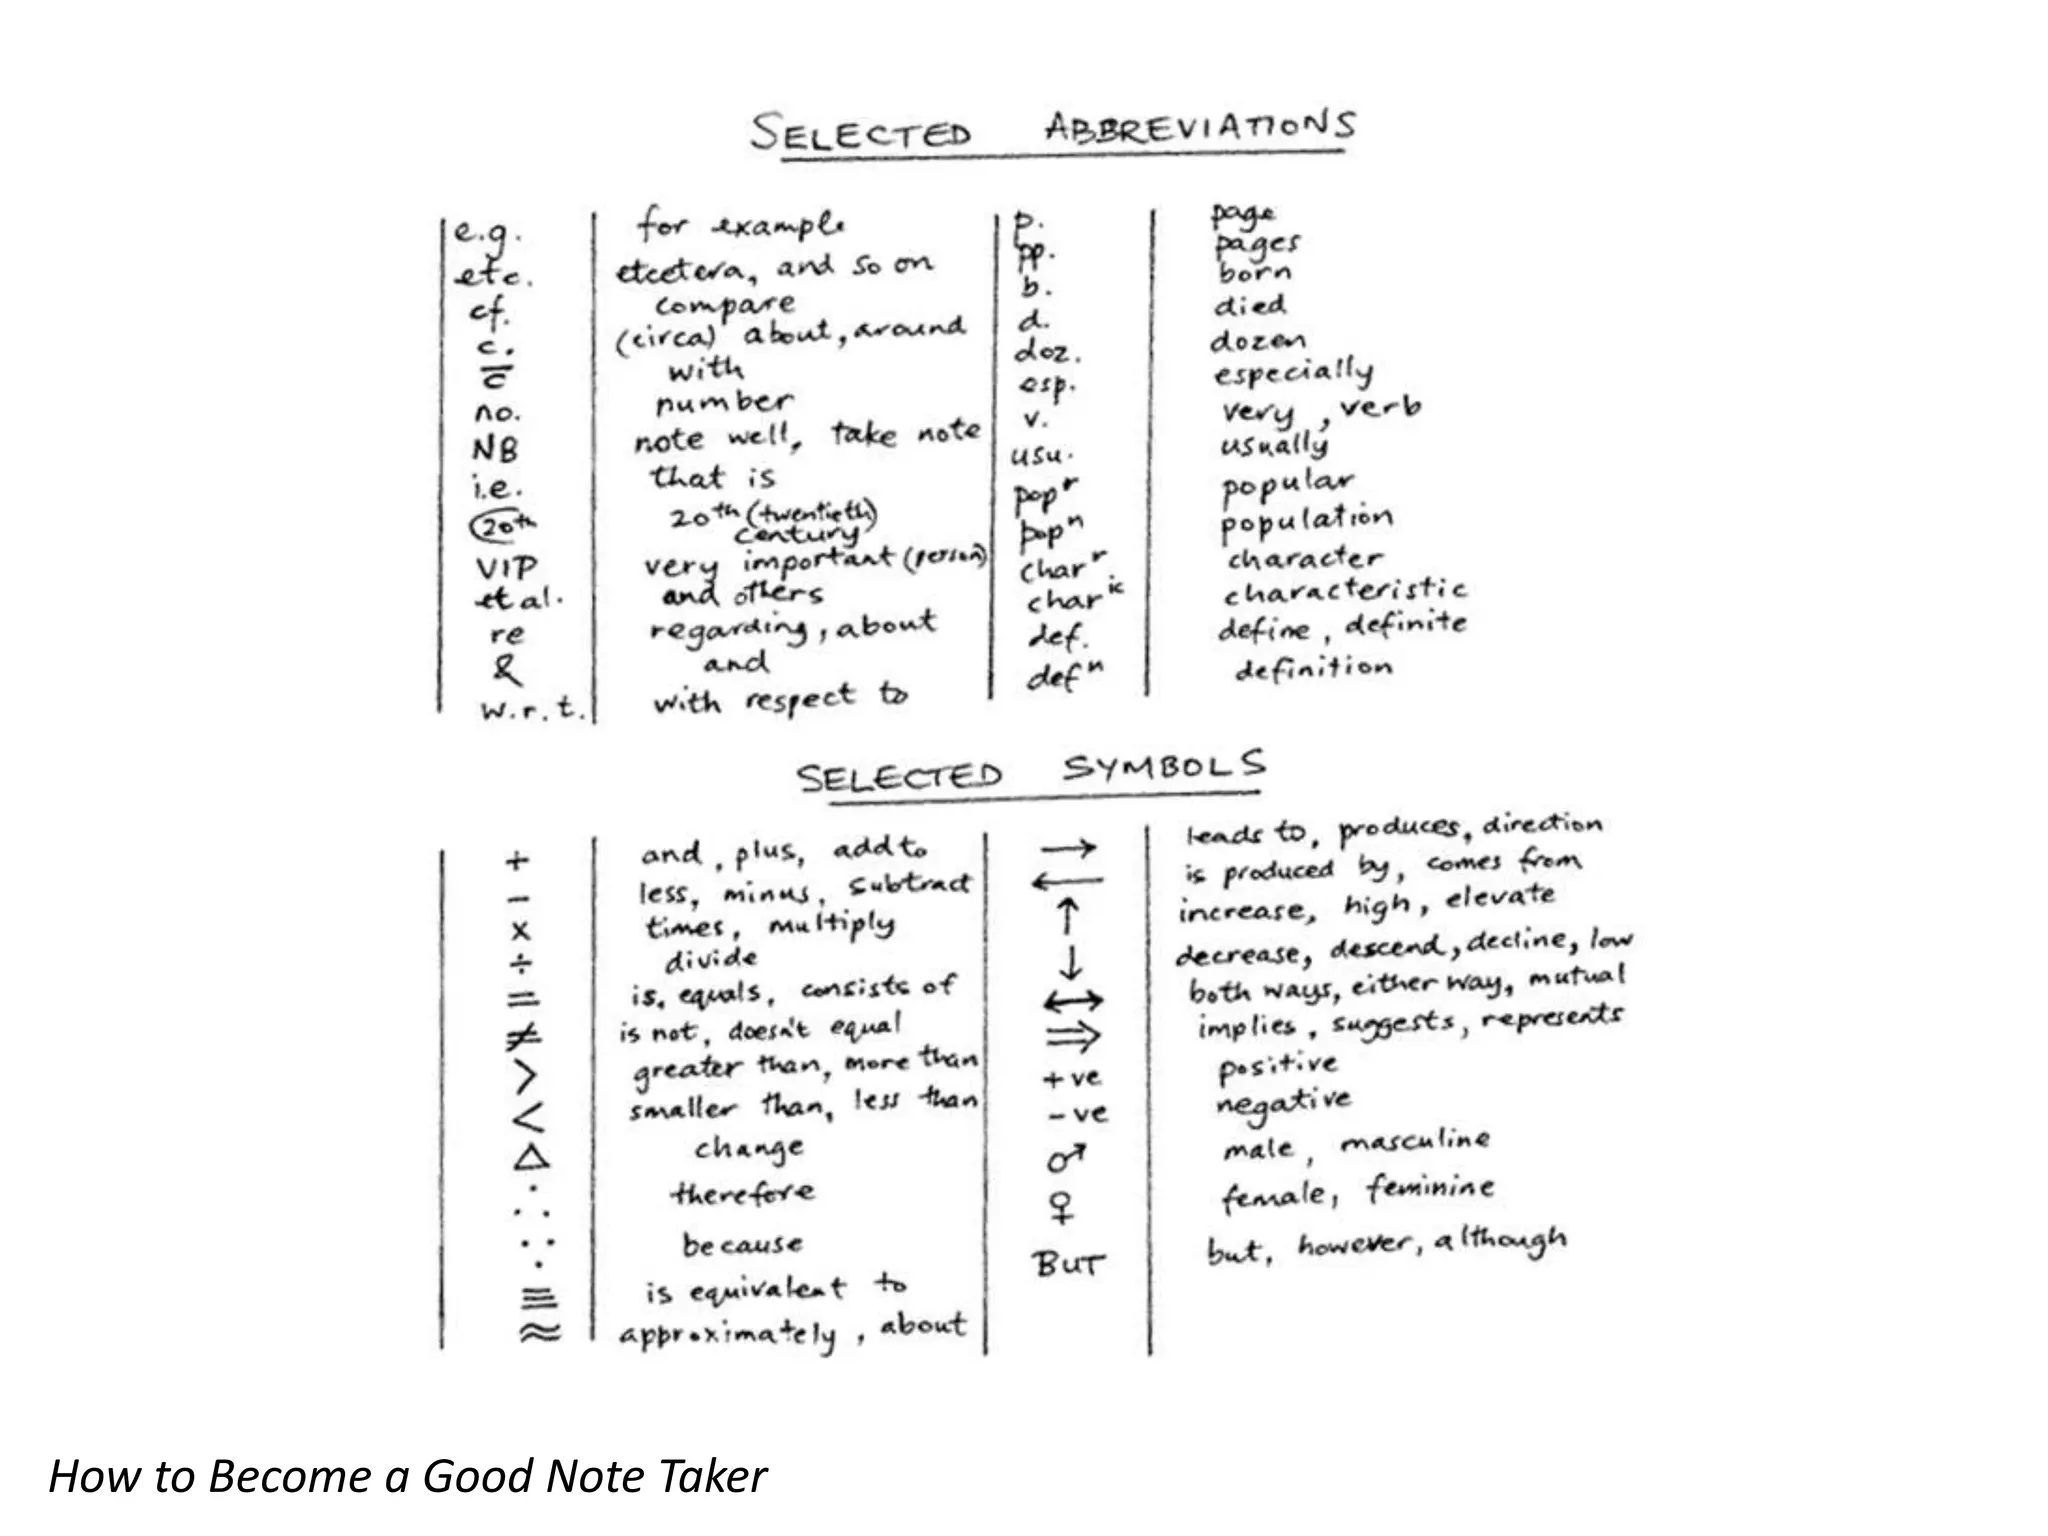 SELECTED ABBREVIATIONS
e.g. for example p. page
etc. etcetera, and so on pp. pages
cf. compare b. born
c. (circa) about, around d. died
c̅ with doz. dozen
no. number esp. especially
NB note well, take note v. very, verb
i.e. that is usu. usually
20th 20th (twentieth) century popʳ popular
VIP very important (person) popⁿ population
et al. and others charʳ character
re regarding, about charⁱᶜ characteristic
& and def. define, definite
w.r.t. with respect to defⁿ definition
SELECTED SYMBOLS
+ and, plus, add to → leads to, produces, direction
− less, minus, subtract ← is produced by, comes from
x times, multiply ↑ increase, high, elevate
÷ divide ↓ decrease, descend, decline, low
= is, equals, consists of ↔ both ways, either way, mutual
≠ is not, doesn't equal ⇒ implies, suggests, represents
> greater than, more than +ve positive
< smaller than, less than −ve negative
△ change ♂ male, masculine
∴ therefore ♀ female, feminine
∵ because BUT but, however, although
≡ is equivalent to
≈ approximately, about
How to Become a Good Note Taker